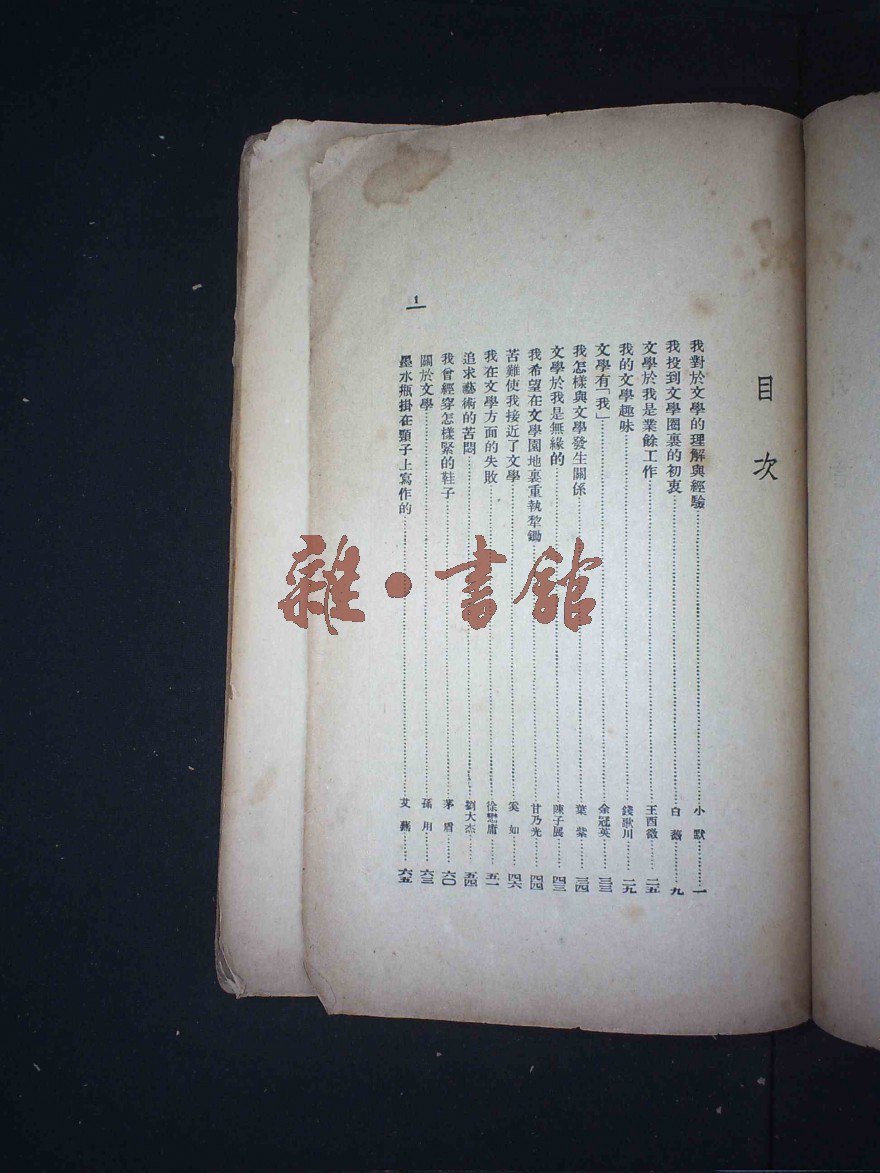 目次
我對於文學的理解與經驗……小默……一
我投到文學圈裏的初衷……白薇……九
文學於我是業餘工作……王酉微……二五
我的文學趣味……錢歌川……二九
文學有「我」……余冠英……三三
我怎樣與文學發生關係……葉紫……三四
文學於我是無緣的……陳子展……四三
我希望在文學園地裏重執犂鋤……甘乃光……四四
苦難使我接近了文學……奚如……四六
我在文學方面的失敗……徐懋庸……五一
追求藝術的苦悶……劉大杰……五四
我曾經穿怎樣緊的鞋子……茅盾……六〇
關於文學……孫用……六三
墨水瓶掛在頸子上寫作的……艾蕪……六五
1
雜·書館